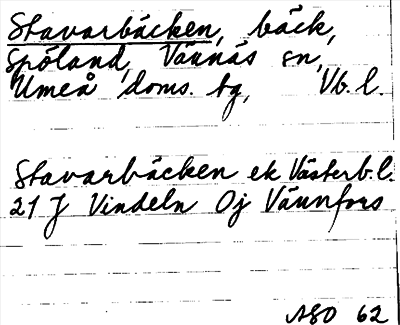 Stavarbäcken, bäck,
Spöland, Vännäs sn,
Umeå doms. tg, Vb. l.
Stavarbäcken ek Västerb. l.
21 J Vindeln Oj Vännfors
ASO 62